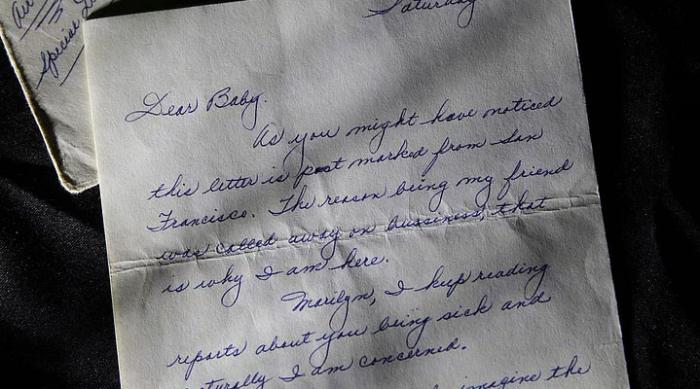 Special
Saturday
Dear Baby.
As you might have noticed
this letter is post marked from San
Francisco. The reason being my friend
was called away on bussiness, that
is why I am here.
Marilyn, I keep reading
reports about you being sick and
naturally I am concerned.
imagine the